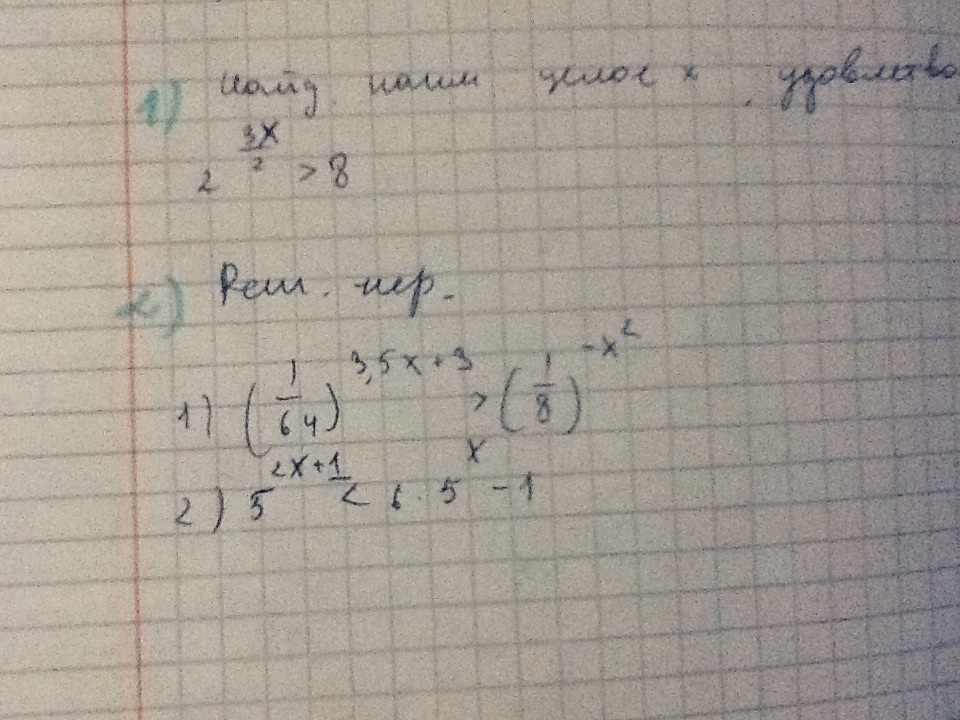 1) найд. наим целое x, удовлетво
2^(3x/2) > 8
2) Реш. нер.
1) (1/64)^(3,5x+3) > (1/8)^(-x²)
2) 5^(2x+1) < 6·5^x - 1